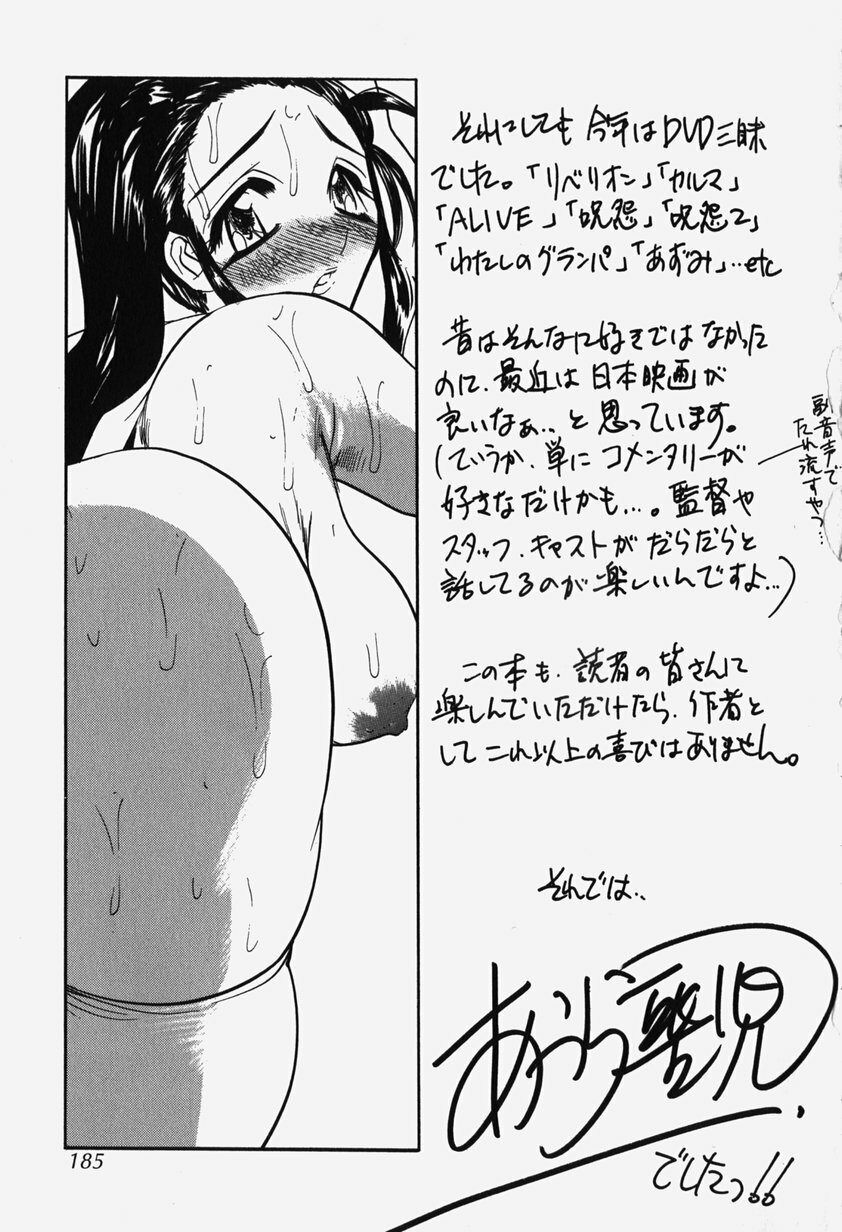 それにしても今年はDVD三昧
でした。「リベリオン」「カルマ」
「ALIVE」「呪怨」「呪怨2」
「わたしのグランパ」「あずみ」…etc
昔はそんなに好きではなかった
のに、最近は日本映画が
良いなぁ…と思っています。
(ていうか、単にコメンタリーが
好きなだけかも…。監督や
スタッフ、キャストがだらだらと
話してるのが楽しいんですよ…)
副音声で
たれ流すやつ…
この本も、読者の皆さんに
楽しんでいただけたら、作者と
してこれ以上の喜びはありません。
それでは、、
でしたっ!!
185